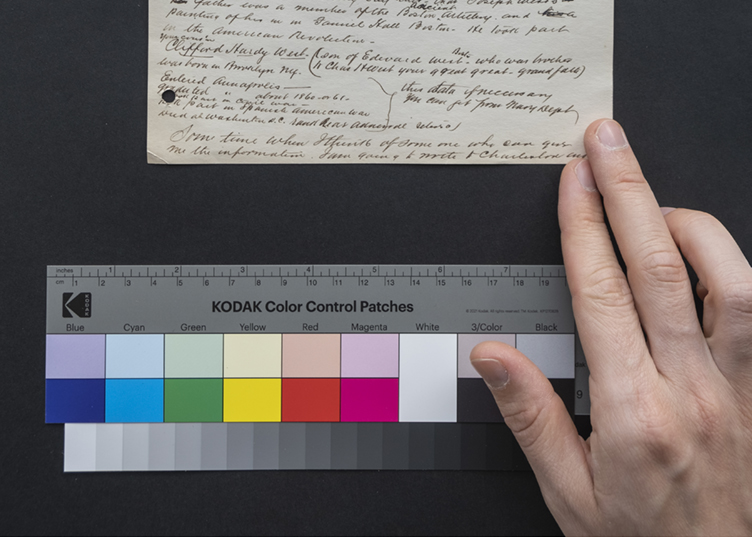 Father was a member of the Boston Artillery. and
painting of him in Faneuil Hall Boston. He took part
in the American Revolution.
Clifford Hardy West. (son of Edward West. who was brother
to Chas H West your great great. grandfather)
was born in Brooklyn Ny.
Entered Annapolis
graduated " about 1860 or 61-
this date if necessary
in civil war
We can get from Navy Dept
part in Spanish American war
died at Washington D.C.
Some time when I think of some one who can give
me the information. I am going to write to Charleston
inches
1 2 3 4 5 6 7
cm 1 2 3 4 5 6 7 8 9 10 11 12 13 14 15 16 17 18 19
KODAK
KODAK Color Control Patches
Blue Cyan Green Yellow Red Magenta White 3/Color Black
9